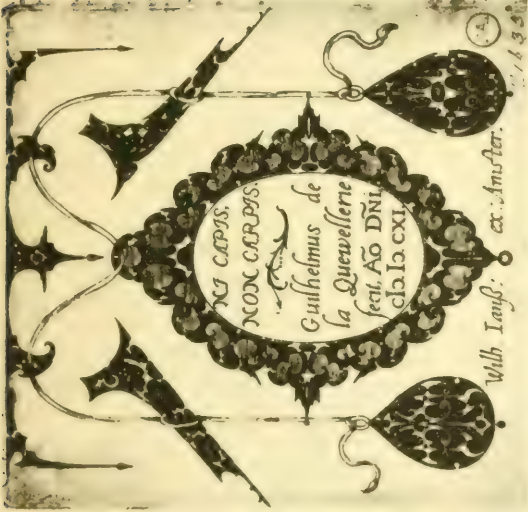 NI CAPIS,
NON CARPIS.
Guilhelmus de
la Quewellerie
fecit. Aõ DÑI
cIↃ. IↃ. CXI.
Wilh Ianß: ex: Amster.